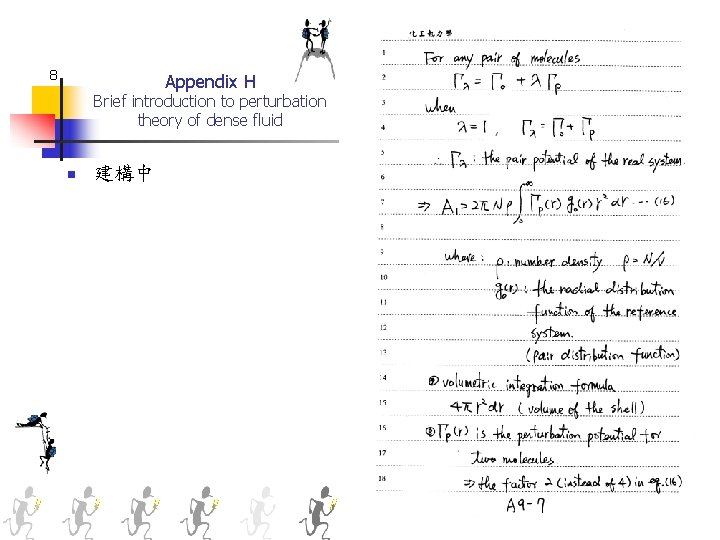 8
Appendix H
Brief introduction to perturbation
theory of dense fluid
建構中
化工熱力學
1 For any pair of molecules
2 Γλ = Γ₀ + λ Γp
3 when
4 λ=1, Γλ = Γ₀ + Γp
5 ∴ Γλ : the pair potential of the real system.
6
7 ⇒ A₁ = 2πNρ ∫₀^∞ Γp(r) g₀(r) r² dr ... (16)
8
9 where : ρ : number density ρ = N/V
10 g₀(r) : the radial distribution
11 function of the reference
12 system.
13 (pair distribution function)
14 ① volumetric integration formula
15 4πr²dr (volume of the shell)
16 ② Γp(r) is the perturbation potential for
17 two molecules
18 ⇒ the factor 2 (instead of 4) in eq.(16)
A9-7